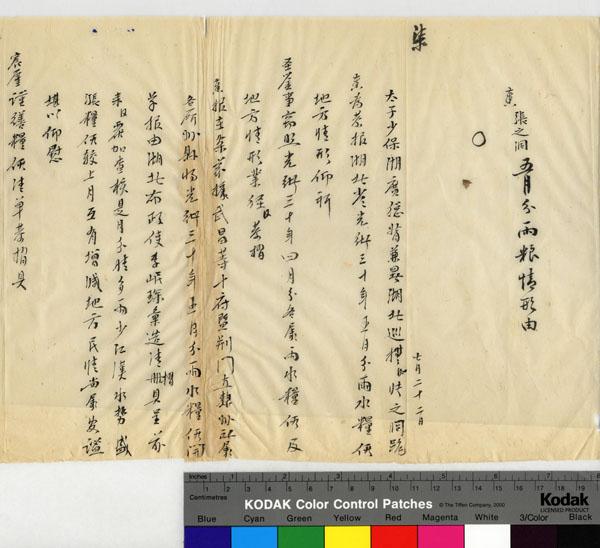 柒
奏 張之洞 五月分雨糧情形由
七月二十二日
太子少保湖廣總督兼署湖北巡撫臣張之洞跪
奏為恭報湖北省光緒三十年五月分雨水糧價
地方情形仰祈
聖鑒事竊照光緒三十年四月分各屬雨水糧價及
地方情形業經臣恭摺
奏報在案茲據武昌等十府暨荊門直隸州所屬
各廳州縣將光緒三十年五月分雨水糧價開
單報由湖北布政使李岷琛彙造清冊摺具呈前
來臣覆加查核是月分晴多雨少江漢水勢盛
漲糧價較上月互有增減地方民情尚屬安謐
堪以仰慰
宸廑謹繕糧價清單恭摺具
Inches
1 2 3 4 5 6 7 8
Centimetres
1 2 3 4 5 6 7 8 9 10 11 12 13 14 15 16 17 18 19
KODAK Color Control Patches
© The Tiffen Company, 2000
Kodak
LICENSED PRODUCT
Blue Cyan Green Yellow Red Magenta White 3/Color Black